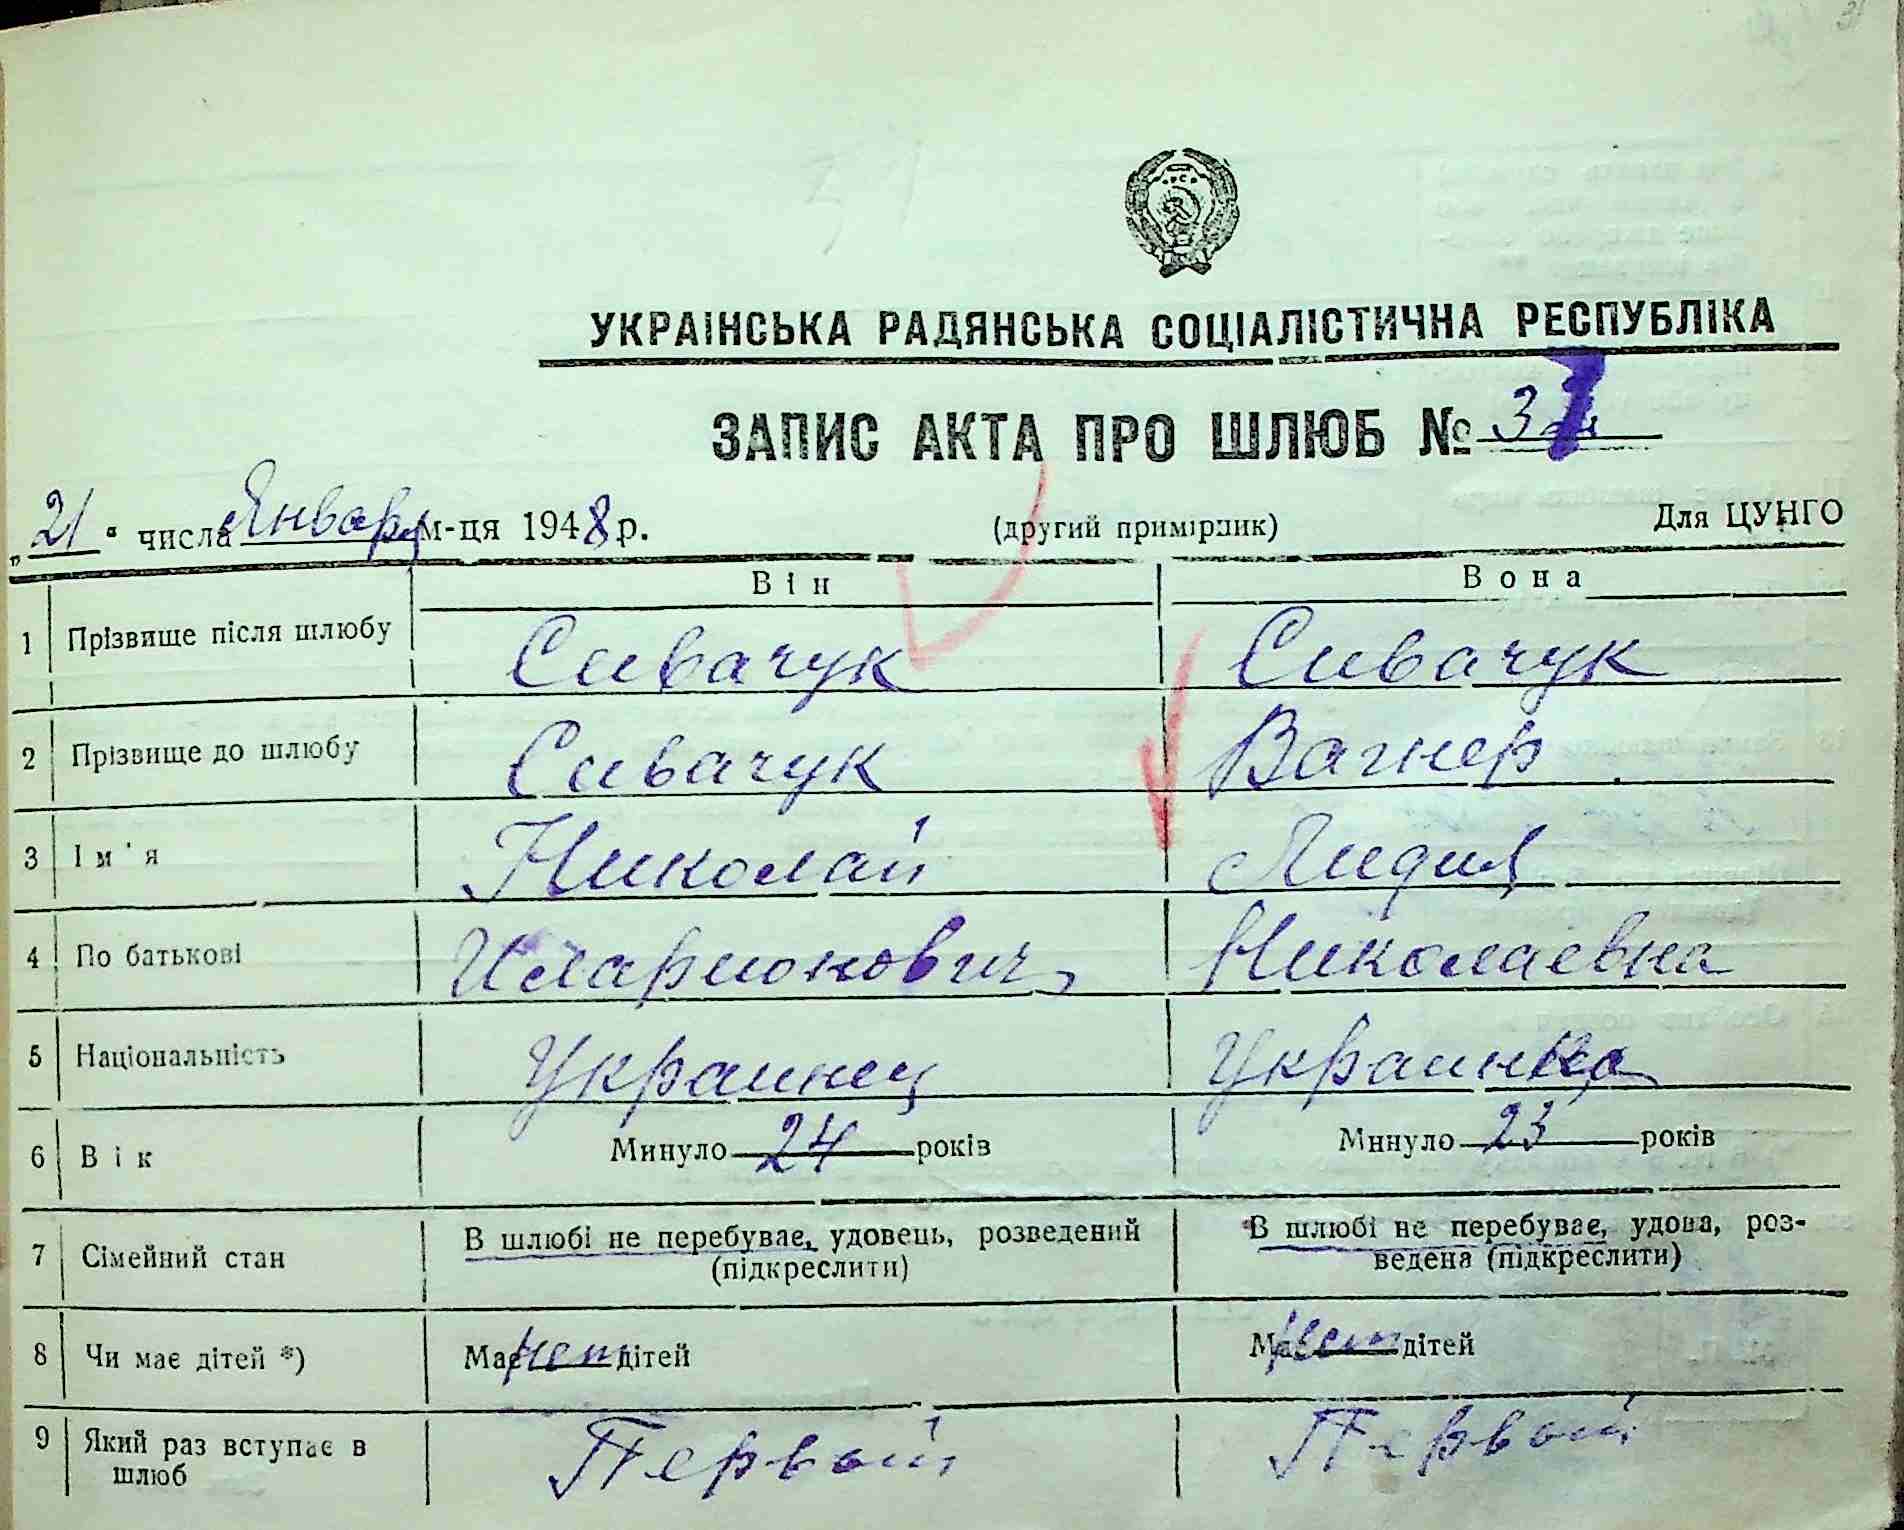 31
УКРАЇНСЬКА РАДЯНСЬКА СОЦІАЛІСТИЧНА РЕСПУБЛІКА
ЗАПИС АКТА ПРО ШЛЮБ № 31
„21“ числа Января м-ця 1948 р. (другий примірник) Для ЦУНГО
Він Вона
1 Прізвище після шлюбу Сивачук Сивачук
2 Прізвище до шлюбу Сивачук Вагнер
3 Ім'я Николай Лидия
4 По батькові Иларионович Николаевна
5 Національність Украинец Украинка
6 Вік Минуло 24 років Минуло 23 років
7 Сімейний стан В шлюбі не перебуває, удовець, розведений (підкреслити) В шлюбі не перебуває, удова, роз-
ведена (підкреслити)
8 Чи має дітей *) Має нет дітей Має нет дітей
9 Який раз вступає в шлюб Первый Первый